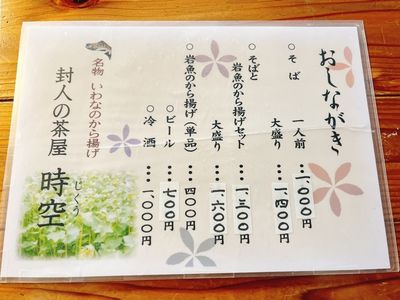 おしながき
○そば 一人前 … 一、000円
大盛り … 一、四00円
○そばと
岩魚のから揚げセット … 一、三00円
大盛り … 一、六00円
○岩魚のから揚げ（単品） … 四00円
○ビール … 七00円
○冷酒 … 一、000円
名物 いわなのから揚げ
封人の茶屋 時空
じくう